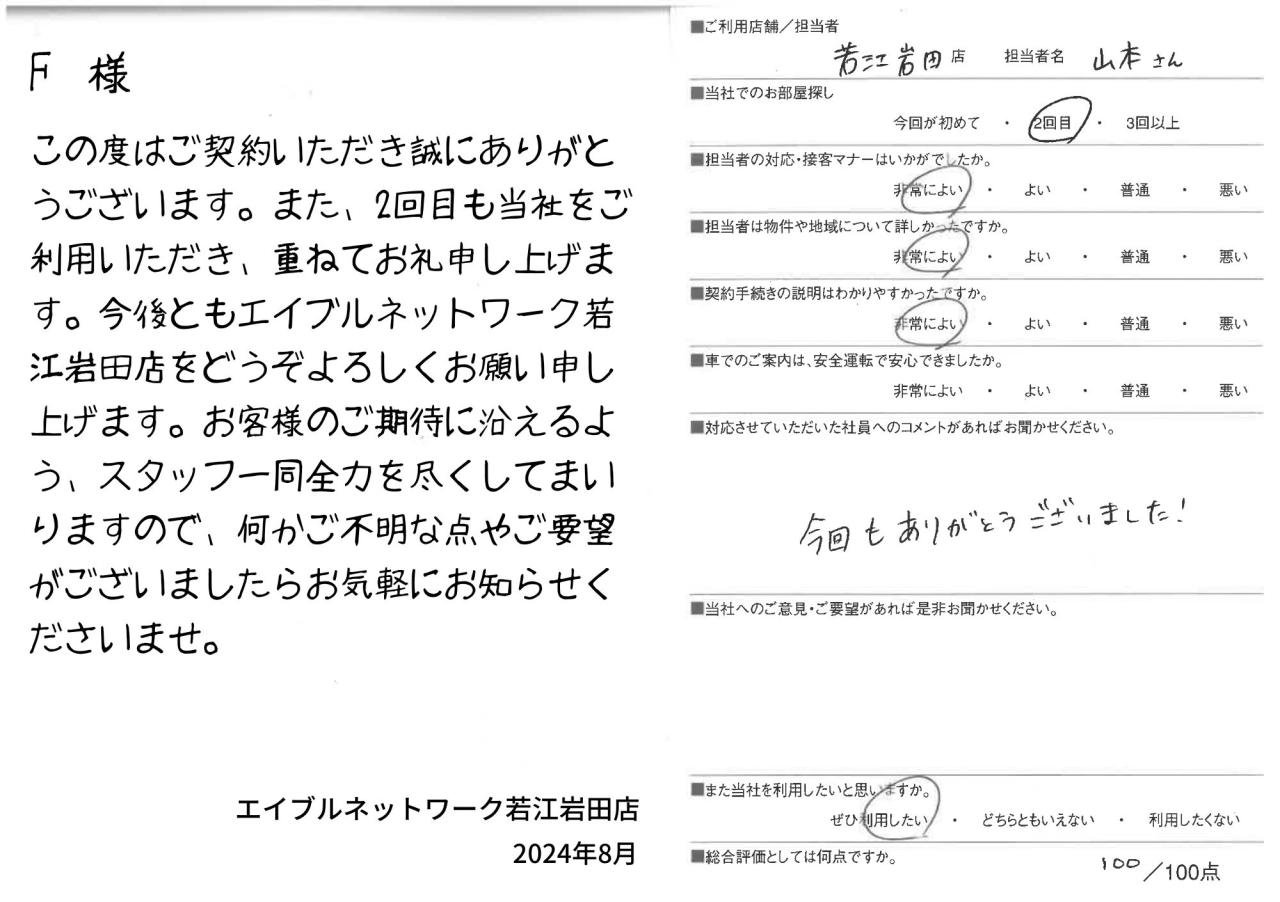 F 様
この度はご契約いただき誠にありがと
うございます。また、2回目も当社をご
利用いただき、重ねてお礼申し上げま
す。今後ともエイブルネットワーク若
江岩田店をどうぞよろしくお願い申し
上げます。お客様のご期待に沿えるよ
う、スタッフ一同全力を尽くしてまい
りますので、何かご不明な点やご要望
がございましたらお気軽にお知らせく
ださいませ。
エイブルネットワーク若江岩田店
2024年8月
■ご利用店舗／担当者
若江岩田 店 担当者名 山本さん
■当社でのお部屋探し
今回が初めて ・ 2回目 ・ 3回以上
■担当者の対応・接客マナーはいかがでしたか。
非常によい ・ よい ・ 普通 ・ 悪い
■担当者は物件や地域について詳しかったですか。
非常によい ・ よい ・ 普通 ・ 悪い
■契約手続きの説明はわかりやすかったですか。
非常によい ・ よい ・ 普通 ・ 悪い
■車でのご案内は、安全運転で安心できましたか。
非常によい ・ よい ・ 普通 ・ 悪い
■対応させていただいた社員へのコメントがあればお聞かせください。
今回もありがとうございました!
■当社へのご意見・ご要望があれば是非お聞かせください。
■また当社を利用したいと思いますか。
ぜひ利用したい ・ どちらともいえない ・ 利用したくない
■総合評価としては何点ですか。
100／100点